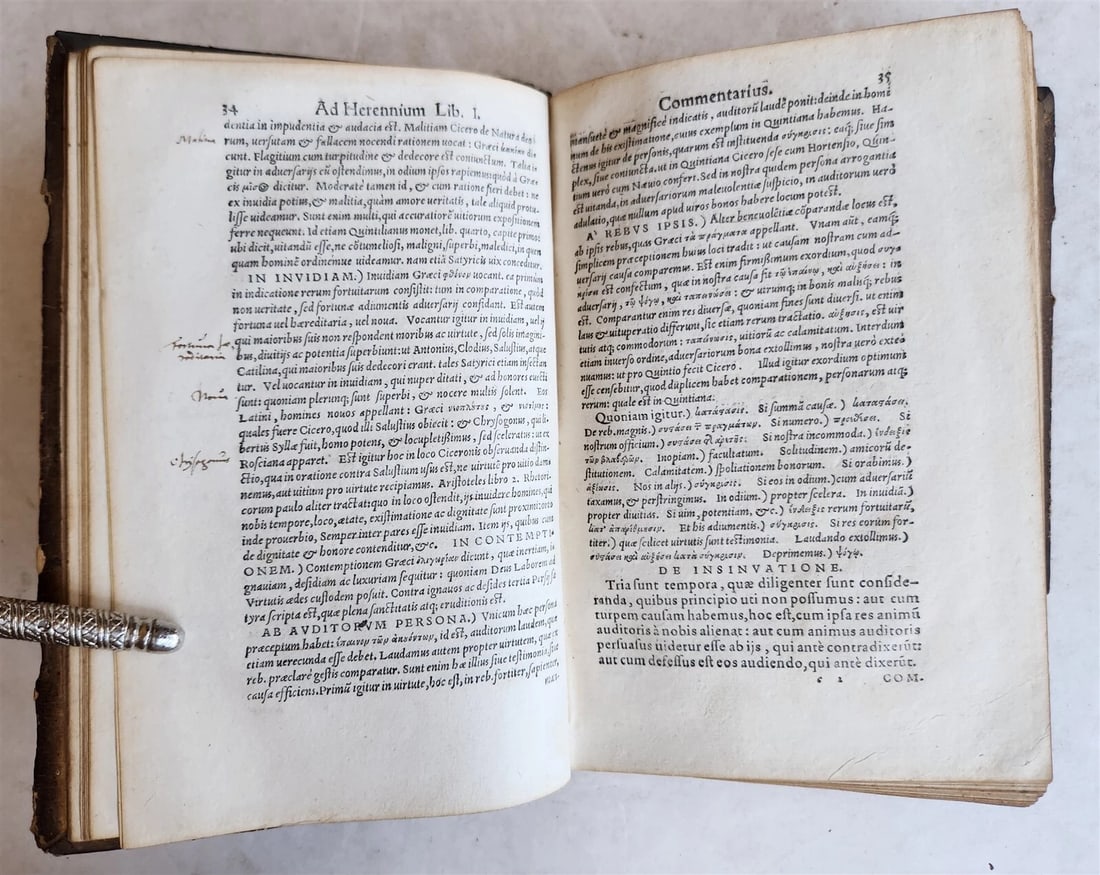 34 Ad Herennium Lib. I.
dentia in impudentia & audacia est. Malitiam Cicero de Natura deo
rum, versutam & fallacem nocendi rationem vocat: Græci
cunt. Flagitium cum turpitudine & dedecore est coniunctum. Talia
gitur in adversarijs cũ ostendimus, in odium ipsos rapiemus: quod à Græ-
cis dicitur. Moderatè tamen id, & cum ratione fieri debet: ne
ex invidia potius, & malitia, quàm amore veritatis, tale aliquid protu-
lisse videamur. Sunt enim multi, qui accuratiorẽ vitiorum expositionem
ferre nequeunt. Id etiam Quintilianus monet, lib. quarto, capite primo:
ubi dicit, vitandũ esse, ne cõtumeliosi, maligni, superbi, maledici, in quen
quam hominẽ ordinemue videamur. nam etiã Satyricis vix conceditur.
IN INVIDIAM.) Invidiam Græci φθόνον vocant. ea primùm
in indicatione rerum fortuitarum consistit: tum in comparatione, quòd
non veritate, sed fortunæ adiumentis adversarij confidant. Est autem
fortuna vel hæreditaria, vel nova. Vocantur igitur in invidiam, vel ij
qui maioribus suis non respondent moribus ac virtute, sed solis imagini-
bus, divitijs ac potentia superbiunt: ut Antonius, Clodius, Salustius, atque
Catilina, qui maioribus suis dedecori erant. tales Satyrici etiam insectan
tur. Vel vocantur in invidiam, qui nuper ditati, & ad honores evecti
sunt: quoniam plerunq; sunt superbi, & nocere multis solent. Eos
Latini, homines novos appellant: Græci
quales fuere Cicero, quod illi Salustius obiecit: & Chrysogonus, qui li-
bertus Syllæ fuit, homo potens, & locupletissimus, sed sceleratus: ut ex
Rosciana apparet. Est igitur hoc in loco Ciceronis observanda distin-
ctio, qua in oratione contra Salustium usus est, ne virtutẽ pro vitio dam-
nemus, aut vitium pro virtute recipiamus. Aristoteles libro 2. Rhetori-
corum paulo aliter tractat: quo in loco ostendit, ijs invidere homines, qui
nobis tempore, loco, ætate, existimatione ac dignitate sunt proximi:
inde proverbio, Semper inter pares esse invidiam. Item ijs, quibus cum
de dignitate & honore contenditur, &c. IN CONTEMPTI-
ONEM.) Contemptionem Græci ὀλιγωρίαν dicunt, quæ inertiam, i-
gnaviam, desidiam ac luxuriam sequitur: quoniam Deus Laborem ad
Virtutis ædes custodem posuit. Contra ignavos ac desides tertia Persij sa
tyra scripta est, quæ plena sanctitatis atq; eruditionis est.
AB AUDITORVM PERSONA.) Vnicum hæc persona
præceptum habet: ἔπαινον τῶν ἀκουόντων, id est, auditorum laudem, quæ
etiam verecunda esse debet. Laudamus autem propter virtutem, quæ ex
reb. præclarè gestis comparatur. Sunt enim hæ illius sive testimonia, sive
causæ efficiens. Primũ igitur in virtute, hoc est, in reb. fortiter, sapienter,
man-
Malitia
Nova
Chrisogonus
Commentarius. 35
mansuetè & magnificè indicatis, auditorũ laudẽ ponit: deinde in homi
num de his existimatione, cuius exemplum in Quintiana habemus. Ha-
ctenus igitur de personis, quarum est instituenda σύγκρισις: eaq; sive sim
plex, sive coniuncta. ut in Quintiana Cicero sese cum Hortensio, Quin-
tium verò cum Nævio confert. Sed in nostra quidem persona arrogantia
est vitanda, in adversariorum malevolentiæ suspicio, in auditorum verò
adulatio, quæ nullum apud viros bonos habere locum potest.
A' REBUS IPSIS.) Alter benevolẽtiæ cõparandæ locus est,
ab ipsis rebus, quas Græci τὰ πράγματα appellant. Vnam aũt, eamq;
simplicem præceptionem huius loci tradit: ut causam nostram cum ad-
versarij causa comparemus. Est enim firmissimum exordium, quod συγκ-
ρίσει est confectum, quæ in nostra causa fit τῷ ἐπαίνῳ, καὶ αὐξήσει: in
adversarij, τῷ ψόγῳ, καὶ ταπεινώσει: & utrunq; in bonis malisq; rebus
est. Comparantur enim res diversæ, quoniam fines sunt diversi. ut enim
laus & vituperatio differunt, sic etiam rerum tractatio. αὔξησις, est vir
tutis atq; commodorum: ταπείνωσις, vitiorũ ac calamitatum. Interdum
etiam inverso ordine, adversariorum bona extollimus, nostra verò exte
nuamus: ut pro Quintio fecit Cicero. Illud igitur exordium optimum
esse censebitur, quod duplicem habet comparationem, personarum atq;
rerum: quale est in Quintiana.
Quoniam igitur.) κατάφασις. Si summã causæ.)
De reb. magnis.) Si numero.) Si
nostrum officium.) Si nostra incommoda.) ἔνδειξις
τῶν βλαβερῶν. Inopiam.) facultatum. Solitudinem.) amicorũ de-
stitutionem. Calamitatem.) spoliationem bonorum. Si orabimus.)
ἀξίωσις. Nos in alijs.) σύγκρισις. Si eos in odium.) cum adversariũ
taxamus, & perstringimus. In odium.) propter scelera. In invidiã.)
propter divitias. Si vim, potentiam, &c.) ἔνδειξις rerum fortuitarũ,
κατ' ἀπαρίθμησιν. Et his adiumentis.) σύγκρισις. Si res eorum for-
titer.) quæ scilicet virtutis sunt testimonia. Laudando extollimus.)
σύστασις καὶ αὔξησις κατὰ σύγκρισιν. Deprimemus.) ψόγῳ.
DE INSINVATIONE.
Tria sunt tempora, quæ diligenter sunt conside-
randa, quibus principio uti non possumus: aut cum
turpem causam habemus, hoc est, cum ipsa res animũ
auditoris à nobis alienat: aut cum animus auditoris
persuasus videtur esse ab ijs, qui antè contradixerũt:
aut cum defessus est eos audiendo, qui antè dixerũt.
c 2 COM-